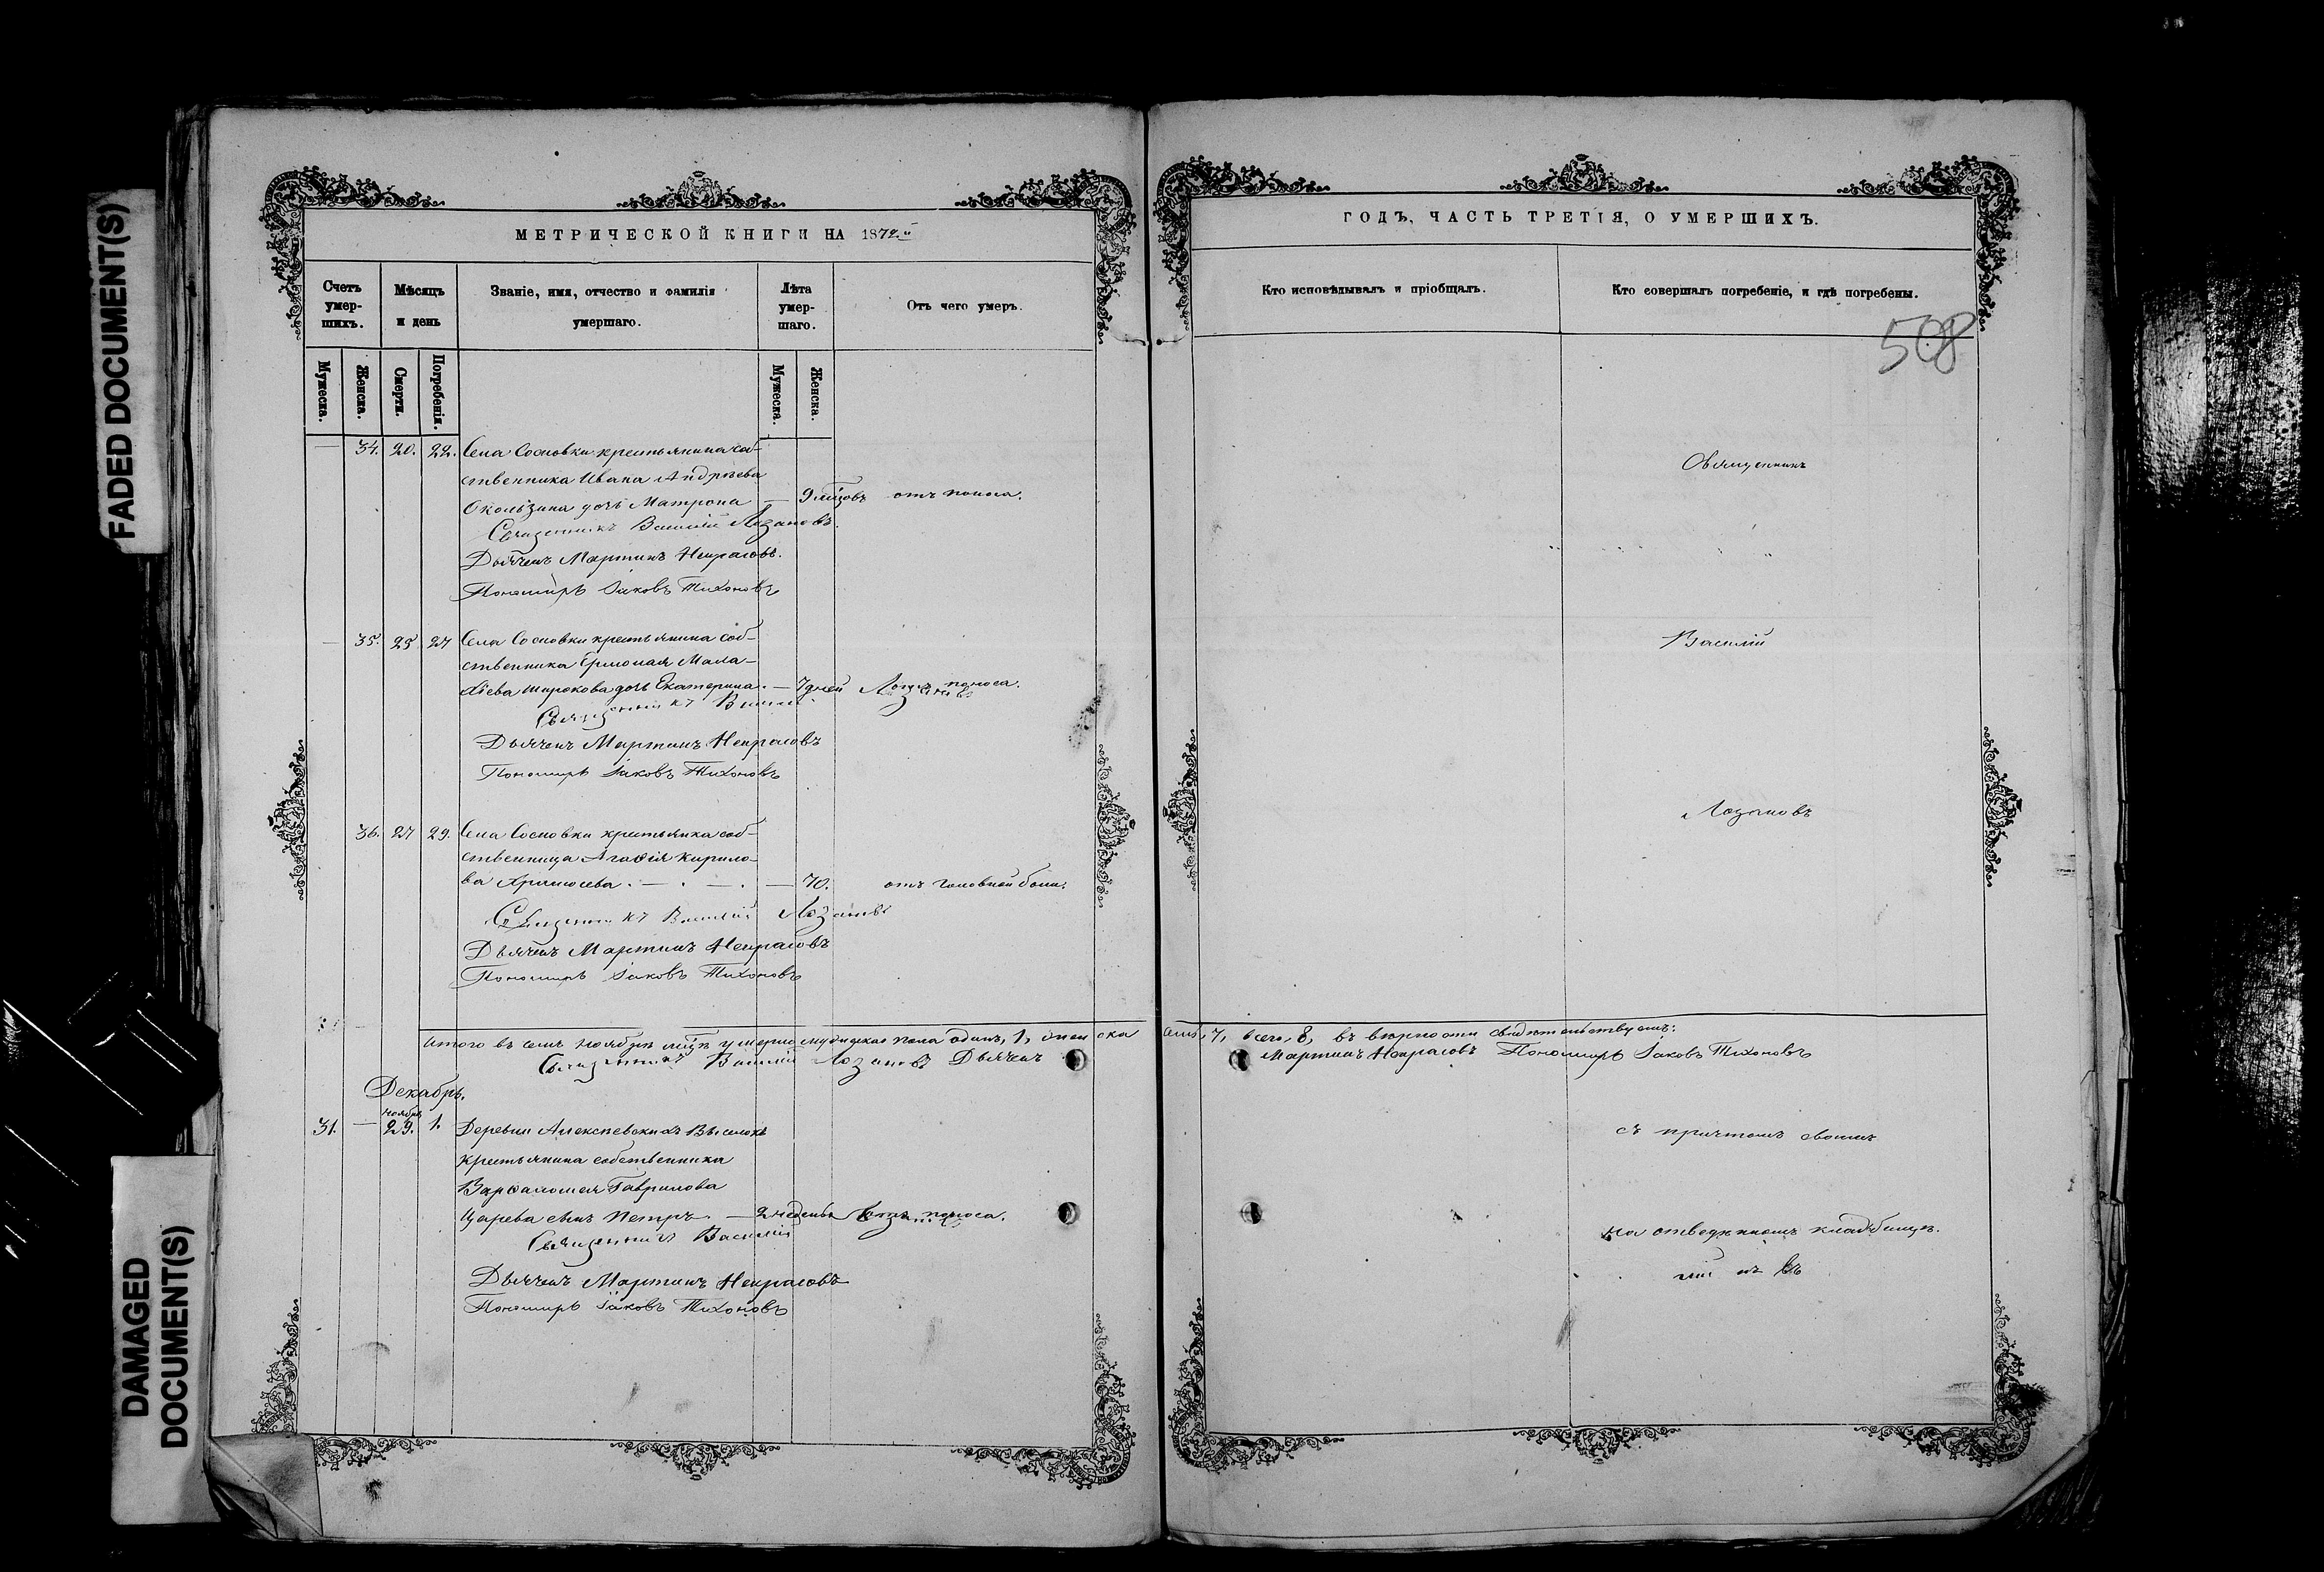 FADED DOCUMENT(S)
DAMAGED
DOCUMENT(S)
МЕТРИЧЕСКОЙ КНИГИ НА 1872й
Счетъ умер- шихъ.
Мѣсяцъ и день
Званіе, имя, отчество и фамилія умершаго.
Лѣта умер- шаго.
Отъ чего умеръ.
Мужеска.
Женска.
Смерти.
Погребенія.
Мужеска.
Женска.
— 34. 20. 22. Села Сосновки крестьянина соб-
ственника Ивана Андрѣева
Окользина дочь Матрона — 9 мѣсцовъ отъ поноса.
Священникъ Василій Лозановъ.
Дьячекъ Мартинъ Некрасовъ.
Пономарь Іаковъ Тихоновъ
— 35. 25 27 Села Сосновки крестьянина соб-
ственника Ермолая Мала-
хіева Широкова дочь Екатерина. — 7 дней отъ поноса.
Священникъ Василій Лозановъ
Дьячекъ Мартинъ Некрасовъ
Пономарь Іаковъ Тихоновъ
36. 27 29. Села Сосновки крестьянка соб-
ственница Агафія Кирило-
ва — 70. отъ головной боли.
Священникъ Василій Лозановъ
Дьячекъ Мартинъ Некрасовъ
Пономарь Іаковъ Тихоновъ
Итого въ семъ ноябрѣ мцѣ умерло мужеска пола одинъ, 1, женска
Священникъ Василій Лозановъ Дьячекъ
Декабрь.
ноября
31. — 29. 1. Деревни Алексѣевскихъ Выселокъ
крестьянина собственника
Варфаломея Гаврилова
Царева сынъ Петръ. — 2 недѣль отъ поноса.
Священникъ Василій Лозановъ
Дьячекъ Мартинъ Некрасовъ
Пономарь Іаковъ Тихоновъ
ГОДЪ, ЧАСТЬ ТРЕТІЯ, О УМЕРШИХЪ.
Кто исповѣдывалъ и пріобщалъ.
Кто совершалъ погребеніе, и гдѣ погребены.
508
Священникъ
Василій
Лозановъ
семь, 7, всего, 8, въ вѣрности свидѣтельствуемъ:
Мартинъ Некрасовъ Пономарь Іаковъ Тихоновъ
съ причтомъ своимъ
на отведенномъ кладбищѣ.